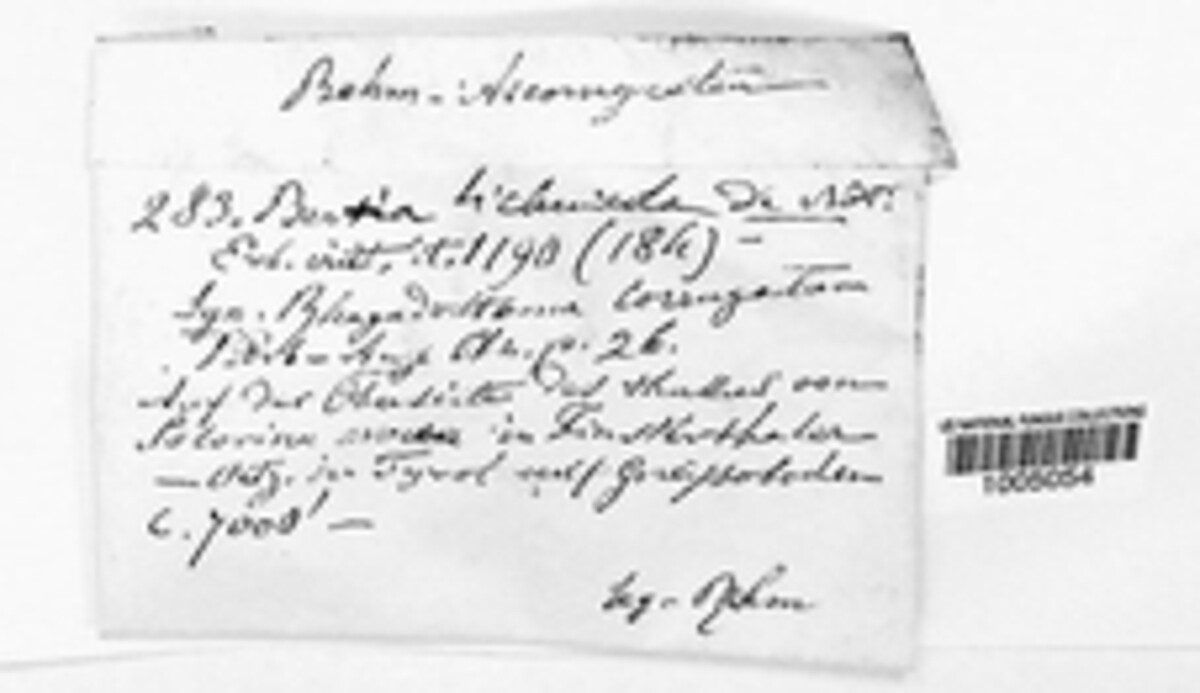 Rehm - Ascomyceten
283. Bertia lichenicola De Not.
Erb. critt. it. 1190 (186)
Syn. Rhagadostoma corrugatum
p. 26.
Auf der Oberseite des thallus von
Solorina crocea im Finsterthaler
— Oetz. in Tyrol auf Gneissboden
c. 7000' —
leg. Rehm
US NATIONAL FUNGUS COLLECTIONS
1005054